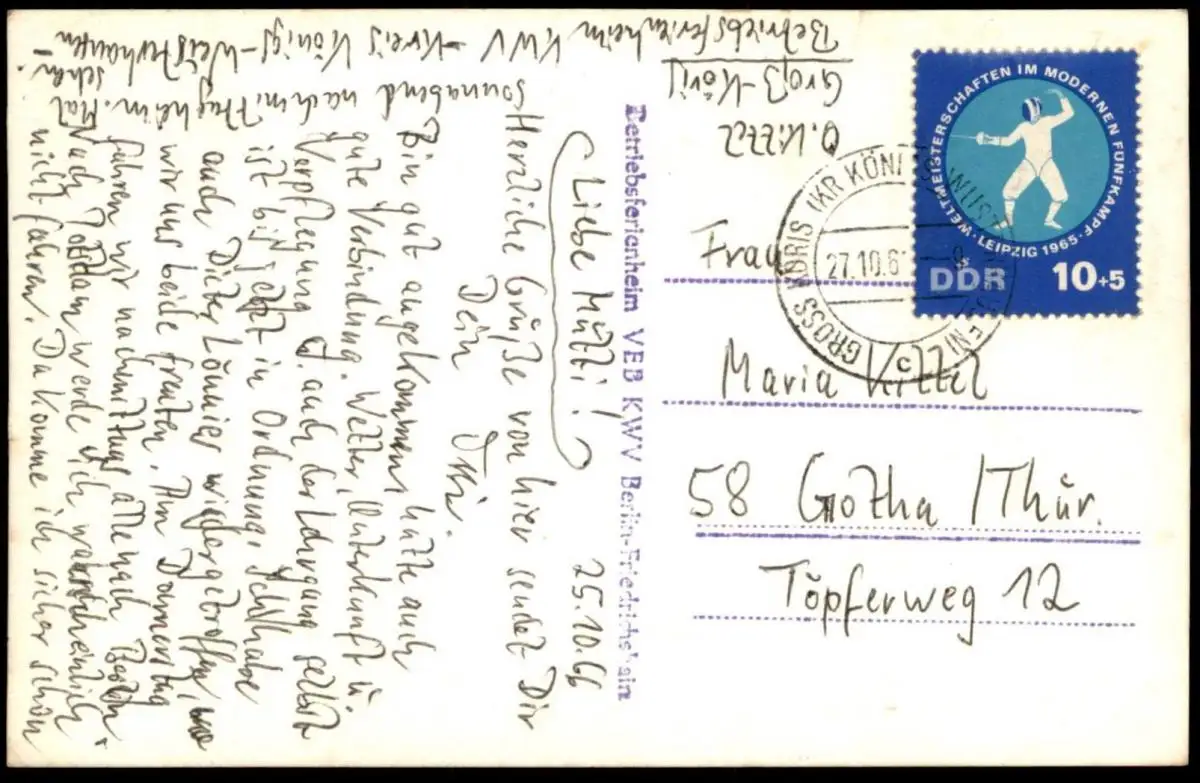 Liebe Mutti! 25.10.66
Herzliche Grüße von hier sendet Dir
Dein
Bin gut angekommen, hatte auch
gute Verbindung. Wetter, Unterkunft u.
Verpflegung u. auch der Lehrgang selbst
ist bis jetzt in Ordnung. Ich habe
auch Dieter wiedergetroffen, wo
wir uns beide freuten. Am Donnerstag
fahren wir nachmittags alle nach Berlin.
Nach Potsdam werde ich wahrscheinlich
nicht fahren. Da komme ich sicher schon
sonnabend nachmittag heim. Mal
sehen.
O. Kittel
Groß-Köris
Betriebsferienheim KWV - Kreis Königs-Wusterhausen
Betriebsferienheim VEB KWV Berlin-Friedrichshain
WELTMEISTERSCHAFTEN IM MODERNEN FÜNFKAMPF · LEIPZIG 1965 ·
DDR 10+5
GROSS KÖRIS
27.10.6
c
Frau
Maria Kittel
58 Gotha /Thür.
Töpferweg 12